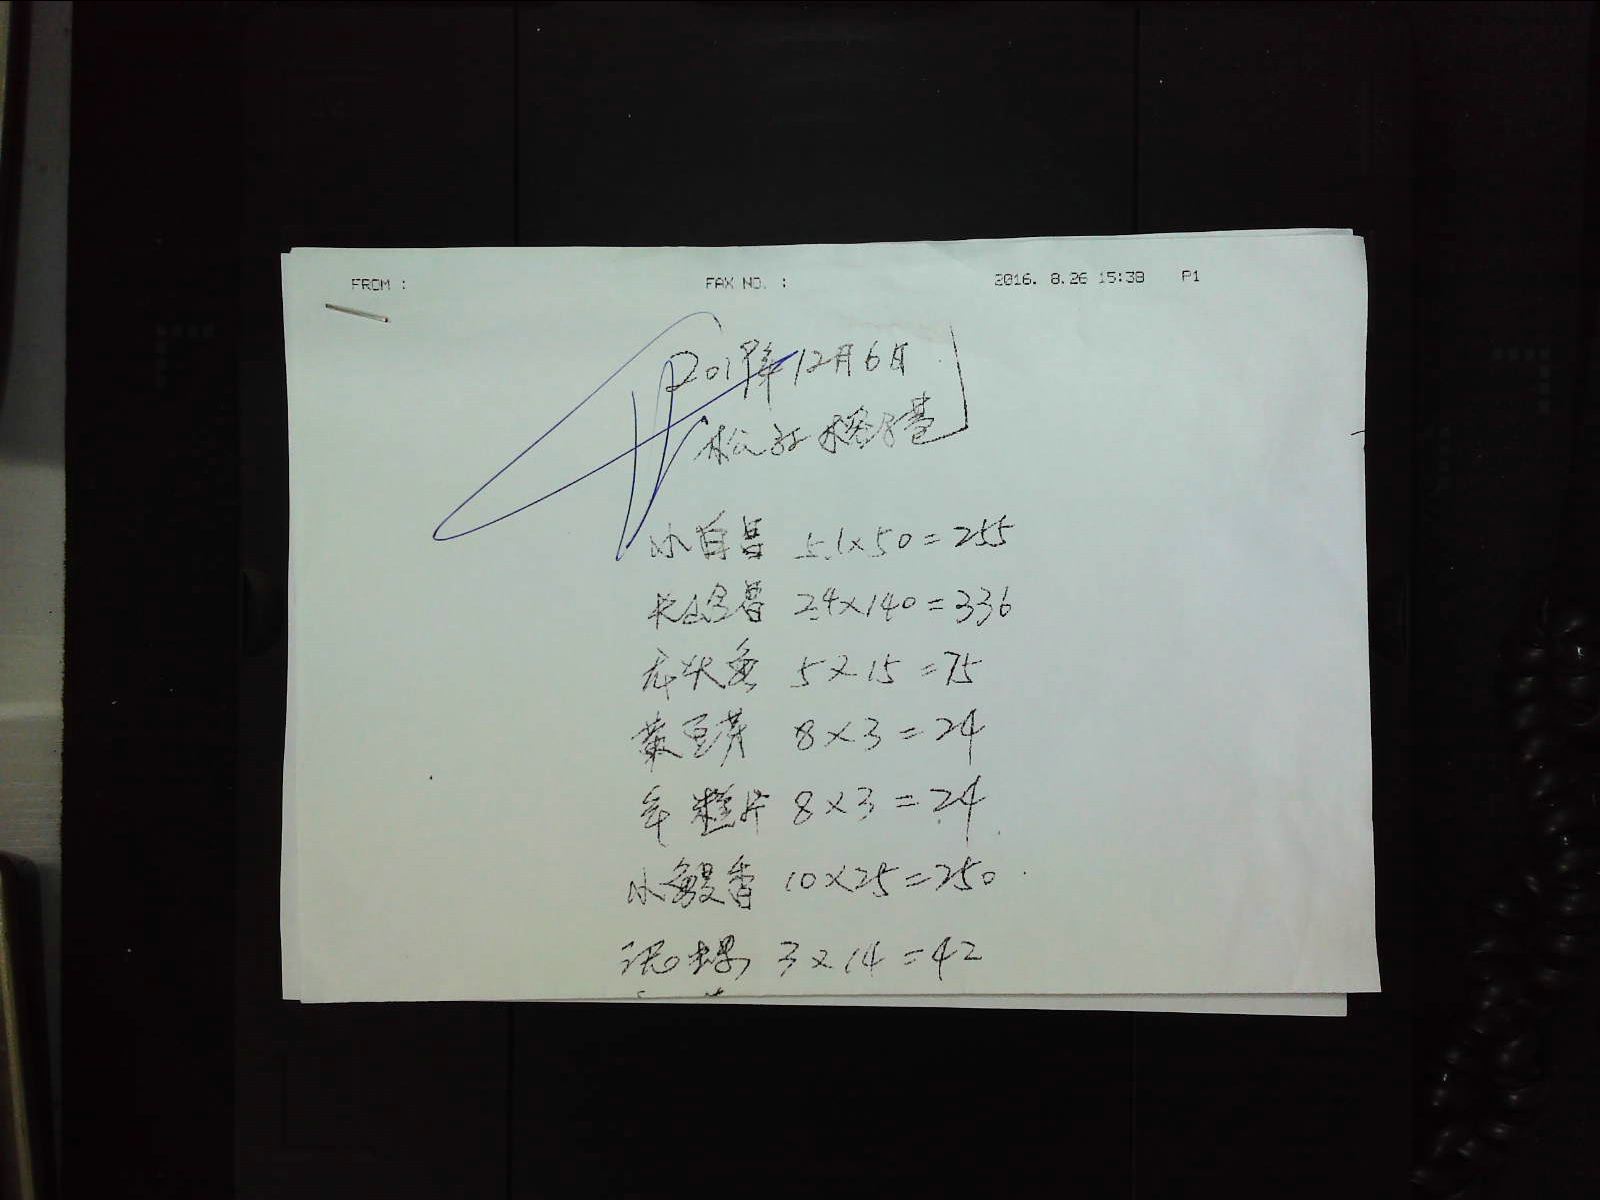 FROM : FAX NO. : 2016. 8.26 15:38 P1
2019年12月6日
松江
小白 5.1×50=255
长 2.4×140=336
5×15=75
黄豆芽 8×3=24
年糕片 8×3=24
小鳗香 10×25=250
泥螺 3×14=42